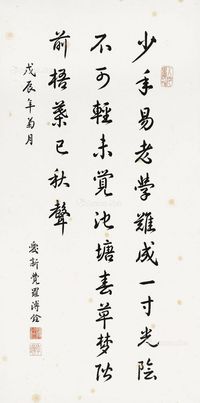 少年易老學難成一寸光陰
不可輕未覺池塘春草夢階
前梧葉已秋聲
戊辰年菊月
愛新覺羅溥佺